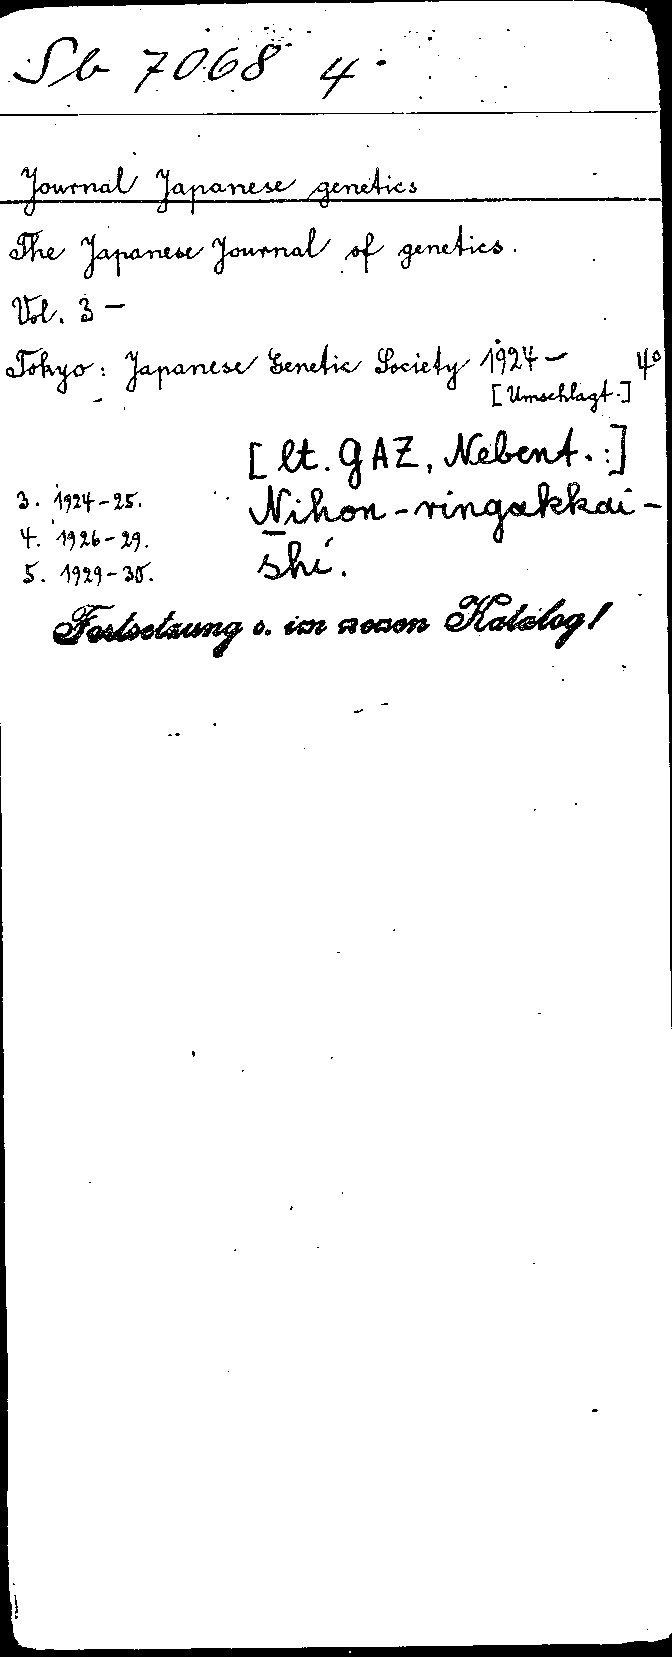 Sb 7068 4°
Journal Japanese genetics
The Japanese Journal of genetics.
Vol. 3 –
Tokyo: Japanese Genetic Society 1924 – 4°
[Umschlagt.]
[lt. GAZ, Nebent.:]
3. 1924–25. Nihon-ringakkai-
4. 1926–29.
5. 1929–30. shi.
Fortsetzung s. im neuen Katalog!